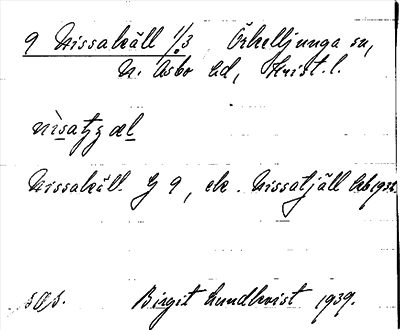 9 Nissakäll 1/3 Örkelljunga sn,
N. Åsbo hd, Krist. l.
Nissakäll G 9, ek. Nissatjäll
Birgit Lundkvist 1939.